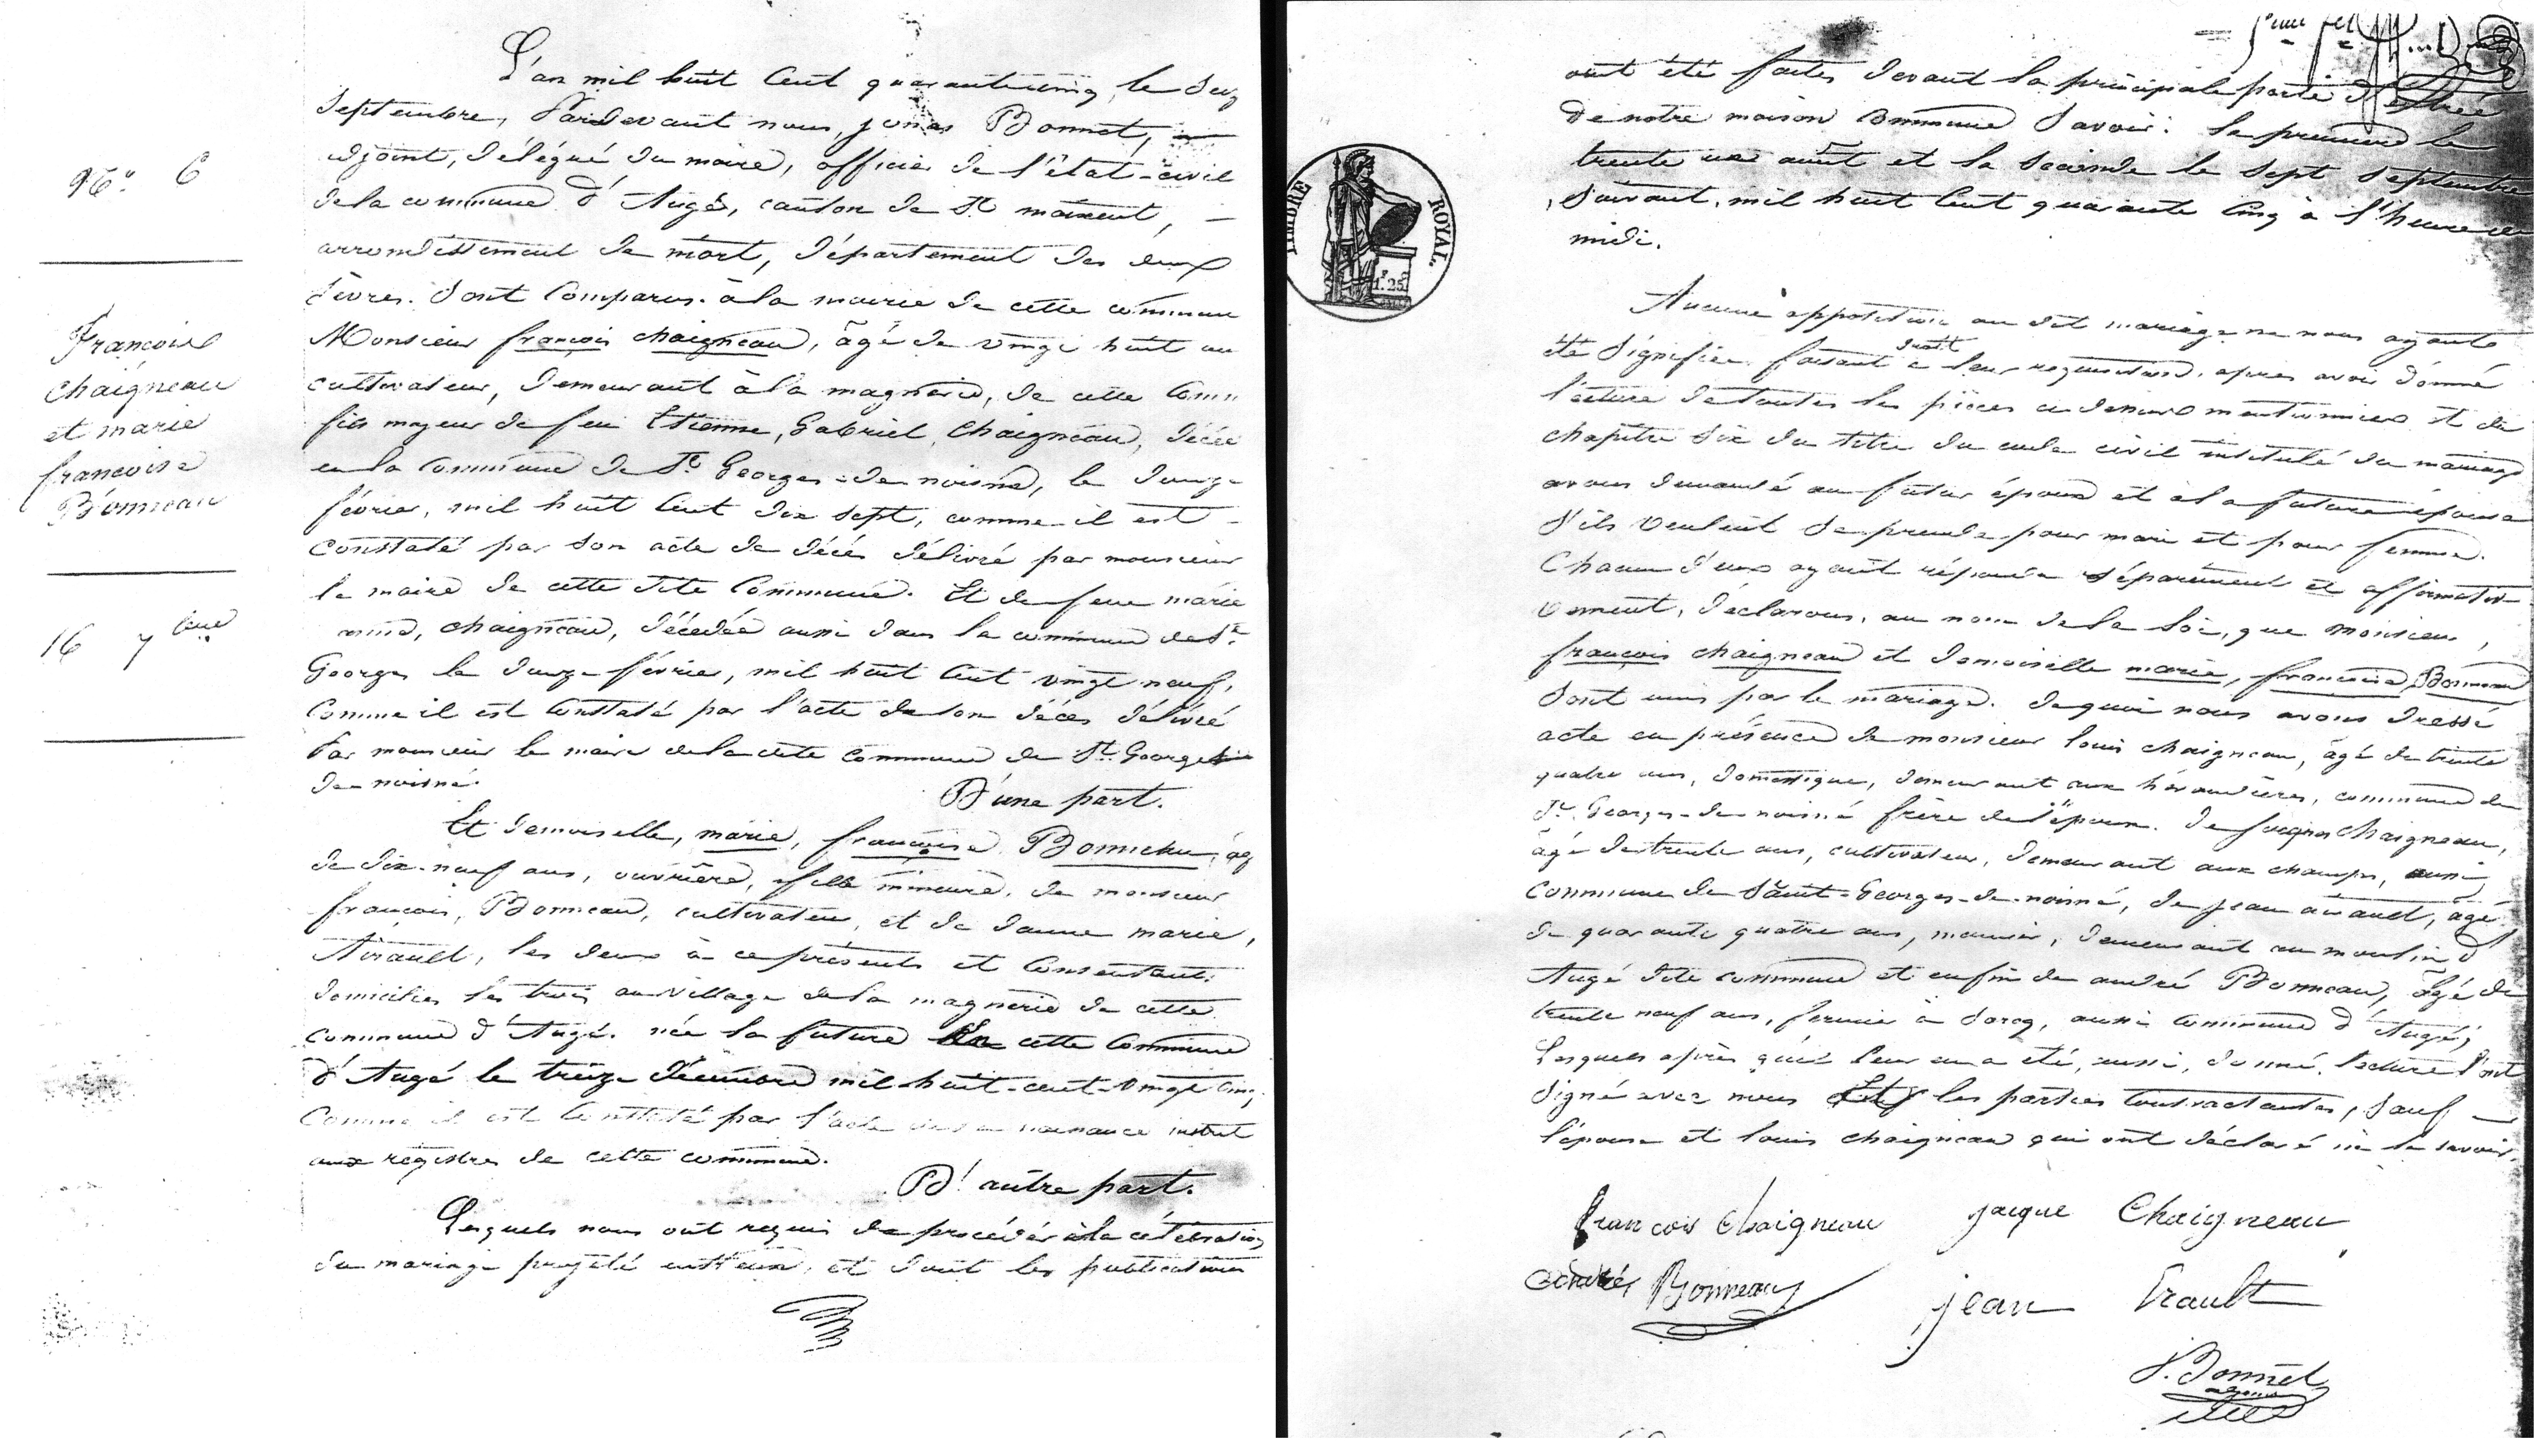 N.° 6
François
chaigneau
et marie
françoise
Bonneau
16 7bre
L'an mil huit Cent quarante cinq, le Seize
Septembre, Pardevant nous, jonas Bonnet,
adjoint, délégué du maire, officier de l'état-civil
de la commune d'Augé, canton de St maixent,
arrondissement de niort, département des deux
sèvres. Sont Comparus à la mairie de cette commune
Monsieur françois chaigneau, âgé de vingt huit an
cultivateur, demeurant à la magnerie, de cette Comm
fils majeur de feu Etienne, Gabriel, Chaigneau, décéd
en la Commune de St Georges-de-noisné, le douze
février, mil huit Cent dix sept, comme il est
Constaté par son acte de décès délivré par monsieur
le maire de cette dite Commune. Et de feue marie
chaigneau, décédée aussi dans la commune de St
Georges le douze février, mil huit Cent vingt neuf,
Comme il est Constaté par l'acte de son décès délivré
Par monsieur le maire de la dite Commune de St Georges
de noisné.
D'une part.
Et demoiselle, marie, françoise Bonneau, âg
de dix-neuf ans, ouvrière, fille mineure, de monsieur
françois, Bonneau, cultivateur, et de dame marie,
Airault, les deux à ce présents et Consentants.
domiciliés les trois au village de la magnerie de cette
Commune d'Augé. née la future en cette Commune
d'Augé le treize décembre mil huit-cent-vingt cinq,
Comme il est Constaté par l'acte de sa naissance inscrit
aux régistres de cette commune.
D'autre part.
Lesquels nous ont requis de procéder à la célébration
du mariage projeté entr'eux, et dont les publications
ont été faites devant la principale porte d'entrée
de notre maison Commune Savoir: la première le
trente un août et la Seconde le Sept Septembre
Suivant, mil huit Cent quarante Cinq à l'heure de
midi.
TIMBRE ROYAL.
1.25
Aucune opposition au dit mariage ne nous ayant
été Signifiée, faisant droit à leur requisition, après avoir donné
lecture de toutes les pièces ci dessus mentionnées et du
chapitre Six du titre du code civil intitulé du mariage
avons demandé au futur époux et à la future épouse
S'ils veulent Se prendre pour mari et pour femme.
Chacun d'eux ayant répondu Séparément et affirmati-
vement, déclarons, au nom de la loi, que Monsieur,
françois chaigneau et demoiselle marie, françoise Bonneau
Sont unis par le mariage. de quoi nous avons dressé
acte en présence de monsieur louis chaigneau, âgé de trente
quatre ans, domestique, demeurant aux héraudières, commune de
St Georges-de-noisné frère de l'époux. de jacques Chaigneau,
âgé de trente ans, cultivateur, demeurant aux champs, aussi
Commune de Saint-Georges-de-noisné, de jean airault, âgé
de quarante quatre ans, meunier, demeurant au moulin d'
Augé dite commune et enfin de andré Bonneau, âgé de
trente neuf ans, fermier à Sorcq, aussi Commune d'Augé,
Lesquels après qu'il leur en a été, aussi, donné lecture l'ont
Signé avec nous Et les parties Contractantes, Sauf
l'épouse et louis chaigneau qui ont déclaré ne le savoir.
francois chaigneau jacque Chaigneau
andré Bonneau jean Erault
J. Bonnet
adjoint